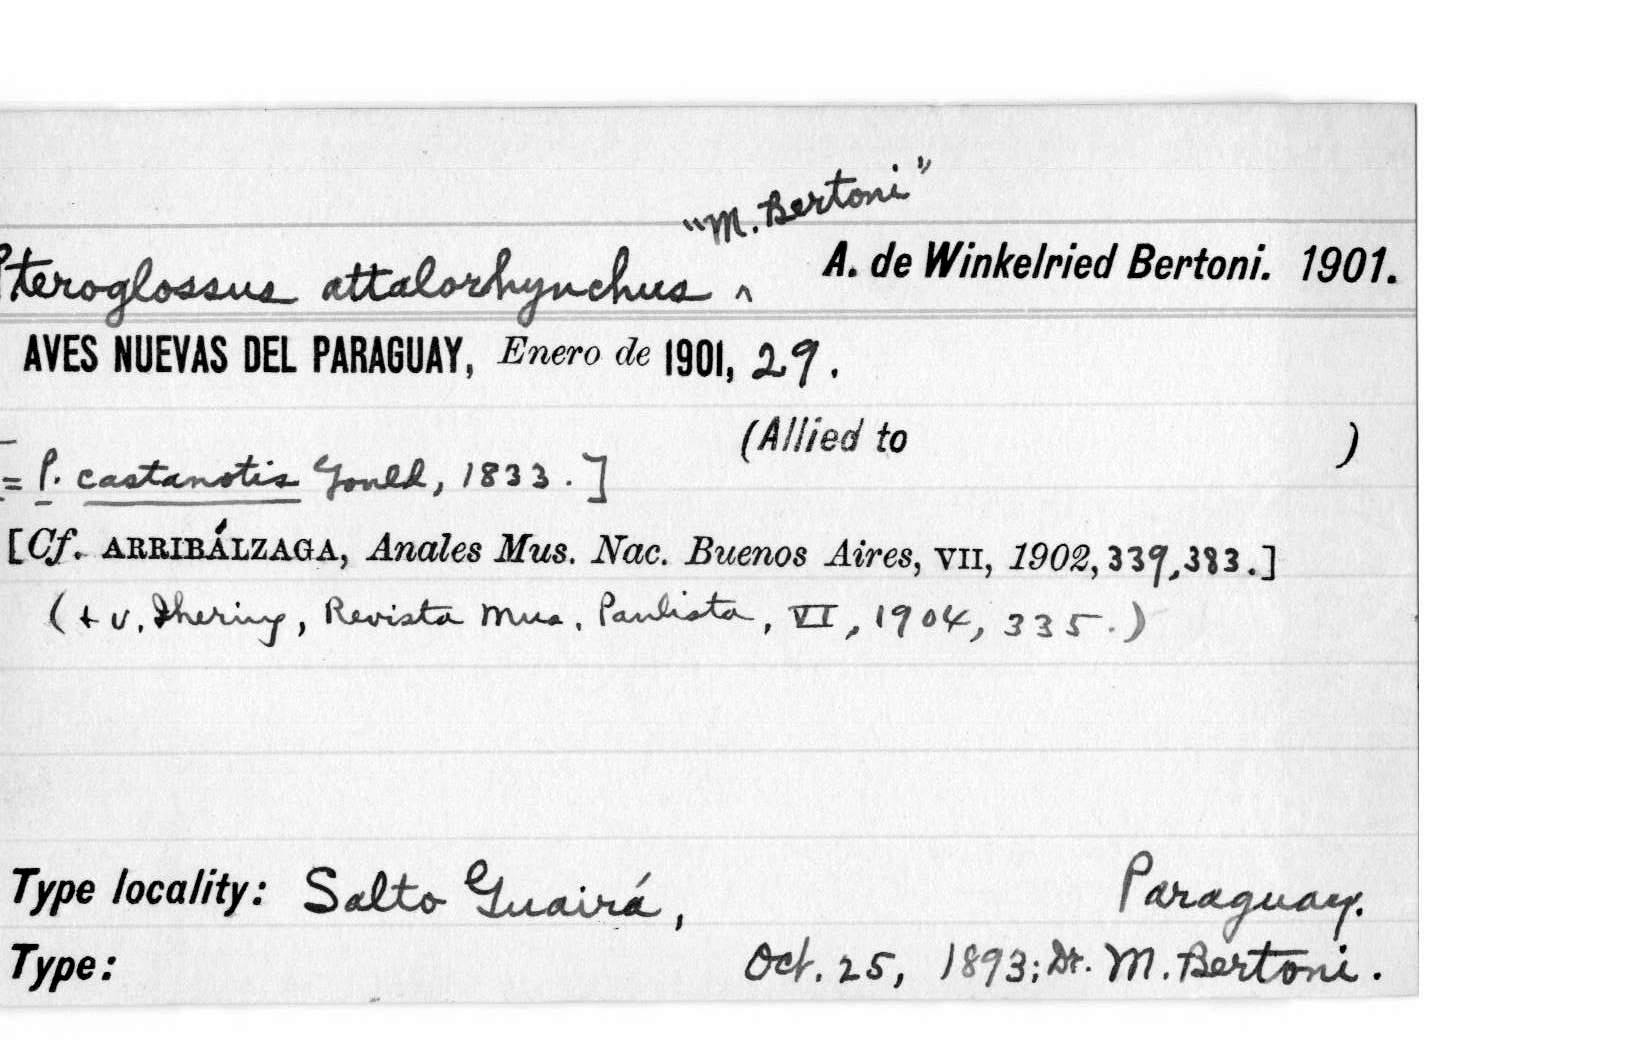 "M. Bertoni"
Pteroglossus attalorhynchus ^ A. de Winkelried Bertoni. 1901.
AVES NUEVAS DEL PARAGUAY, Enero de 1901, 29.
(Allied to )
[= P. castanotis Gould, 1833.]
[Cf. ARRIBÁLZAGA, Anales Mus. Nac. Buenos Aires, VII, 1902, 339, 383.]
(+ v. Ihering, Revista Mus. Paulista, VI, 1904, 335.)
Type locality: Salto Guairá, Paraguay.
Type: Oct. 25, 1893; Dr. M. Bertoni.